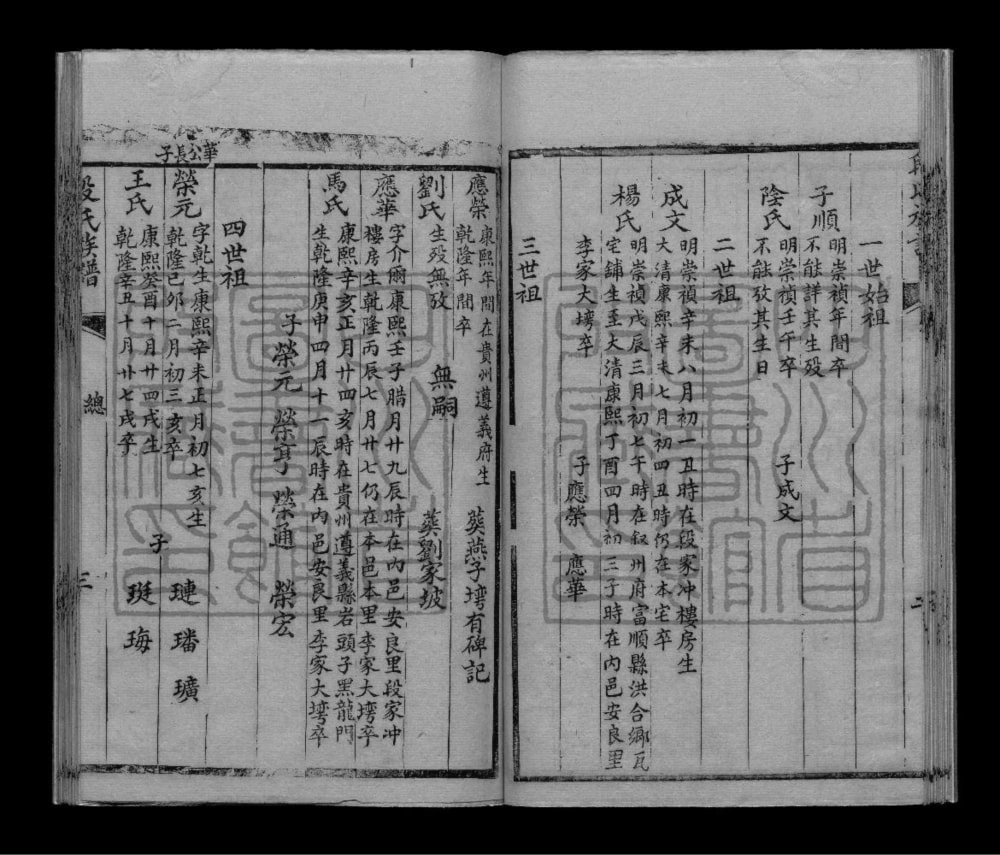 一世始祖
子順
明崇禎年間卒
不能詳其生歿
子成文
陰氏
明崇禎壬午卒
不能攷其生日
二世祖
成文
明崇禎辛未八月初一丑時在段家冲樓房生
大清康熙辛未七月初四丑時仍在本宅卒
子應榮 應華
楊氏
明崇禎戊辰三月初七午時在叙州府富順縣洪合鄉瓦
宅鋪生至大清康熙丁酉四月初三子時在内邑安良里
李家大塆卒
三世祖
應榮
康熙年間在貴州遵義府生
乾隆年間卒
葬燕子塆有碑記
劉氏
生殁無攷
無嗣
葬劉家坡
應華
字介爾康熙壬子腊月廿九辰時在内邑安良里段家冲
樓房生乾隆丙辰七月廿七仍在本邑本里李家大塆卒
馬氏
康熙辛亥正月廿四亥時在貴州遵義縣岩頭子黑龍門
生乾隆庚申四月十一辰時在内邑安良里李家大塆卒
子榮元 榮亨 榮通 榮宏
四世祖
華公長子
榮元
字乾生康熙辛未正月初七亥生
乾隆己夘二月初三亥卒
王氏
康熙癸酉十月廿四戌生
乾隆辛丑十月廿七戌卒
子
璉 璠 璜
珽 珻
段氏族譜
總
三